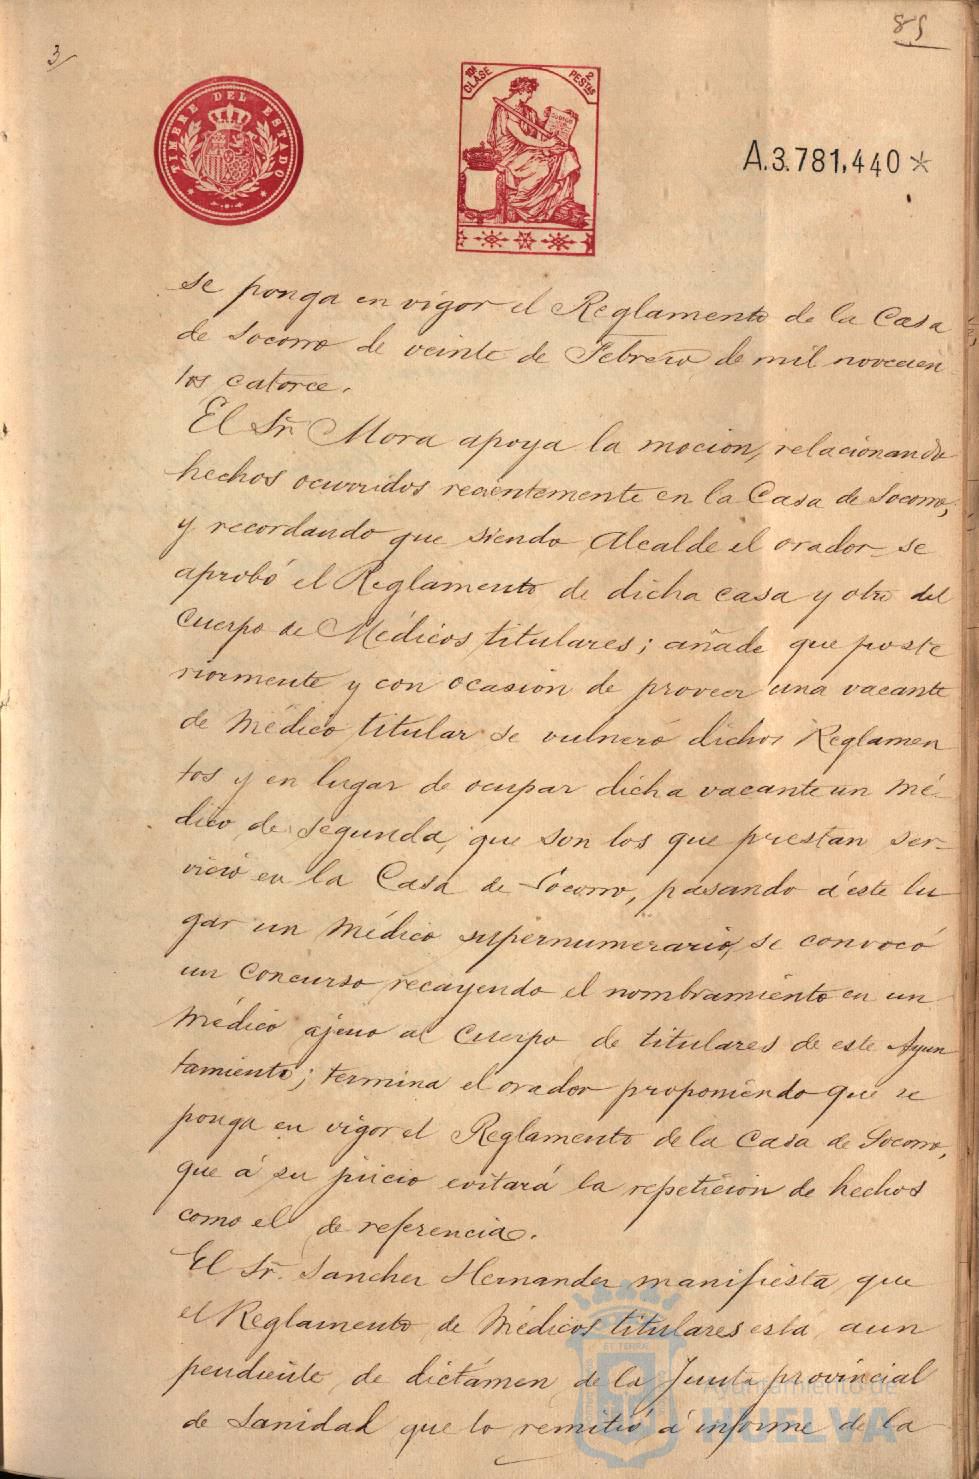 3/
85
TIMBRE DEL ESTADO
10ª CLASE
2 PESTAS
A.3.781,440 *
se ponga en vigor el Reglamento de la Casa
de Socorro de veinte de Febrero de mil novecien
tos catorce.
El Sr. Mora apoya la mocion, relacionando
hechos ocurridos recientemente en la Casa de Socorro,
y recordando que siendo Alcalde el orador se
aprobó el Reglamento de dicha casa y otro del
Cuerpo de Médicos titulares; añade que poste
riormente y con ocasión de proveer una vacante
de Médico titular se vulneró dichos Reglamen
tos y en lugar de ocupar dicha vacante un Mé-
dico de segunda, que son los que prestan ser-
vicio en la Casa de Socorro, pasando á este lu
gar un Médico supernumerario, se convocó
un Concurso recayendo el nombramiento en un
Médico ajeno al Cuerpo de titulares de este Ayun
tamiento; termina el orador proponiendo que se
ponga en vigor el Reglamento de la Casa de Socorro,
que á su juicio evitará la repetición de hechos
como el de referencia.
El Sr. Sanchez Hernandez manifiesta que
el Reglamento de Médicos titulares está aun
pendiente de dictámen de la Junta provincial
de Sanidad que lo remitió á informe de la
Ayuntamiento de
HUELVA